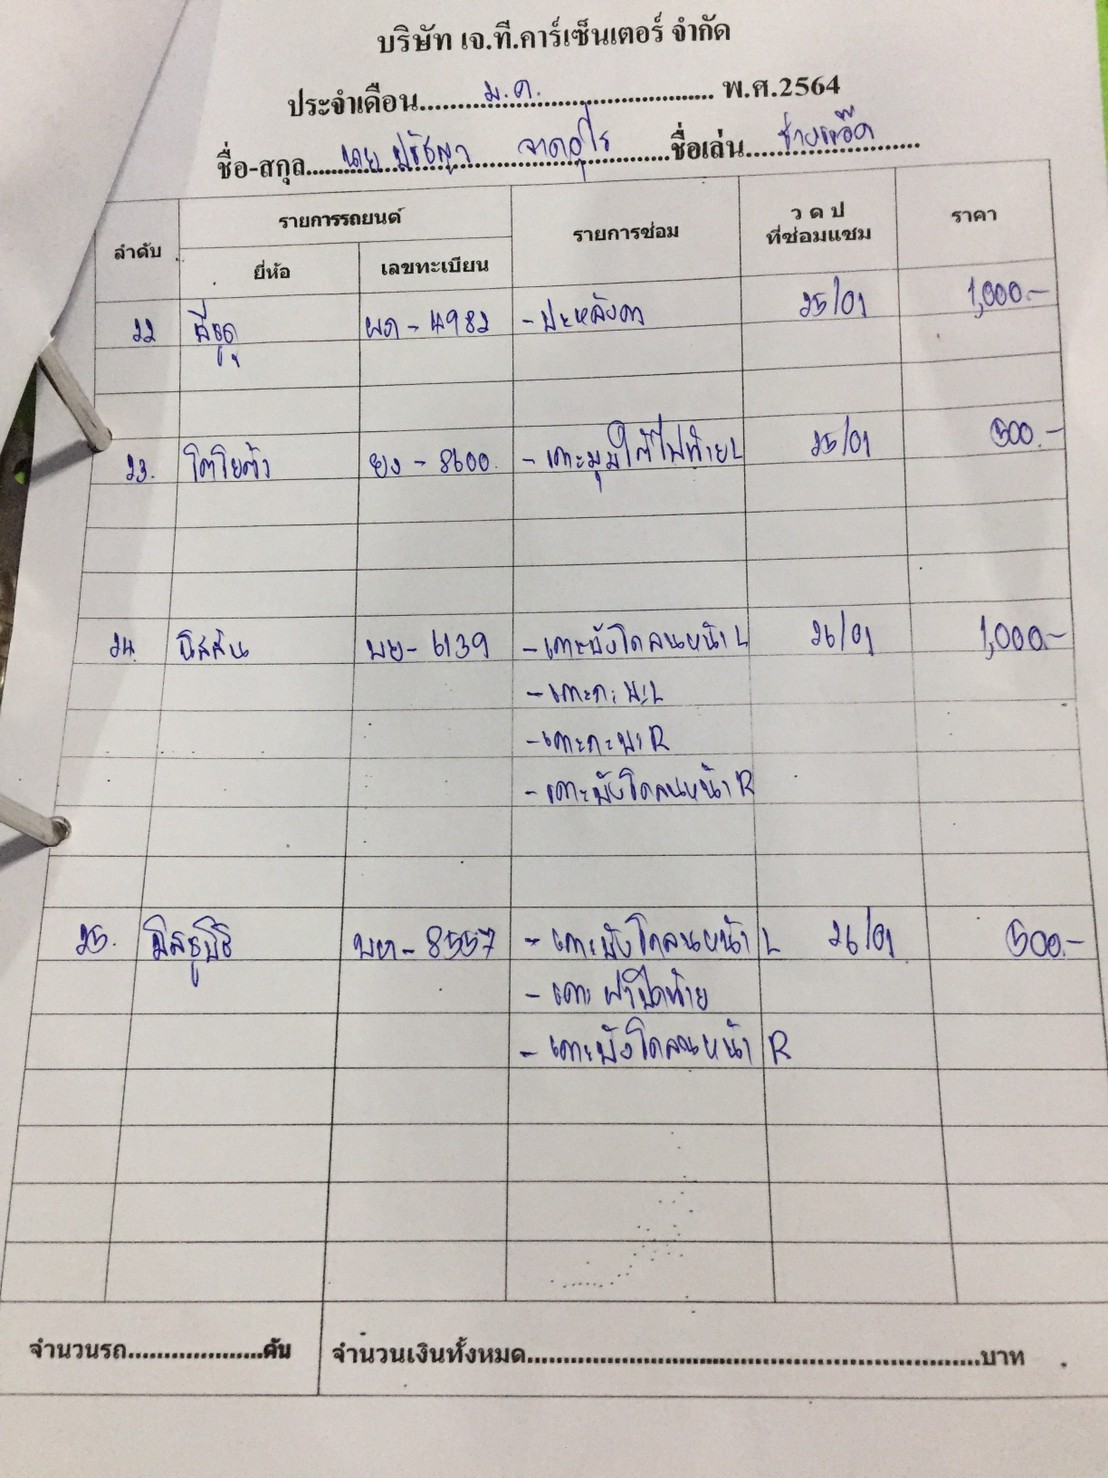 บริษัท เจ.ที.คาร์เซ็นเตอร์ จำกัด
ประจำเดือน ม.ค. พ.ศ.2564
ชื่อ-สกุล นาย ปรัชญา ชื่อเล่น
ลำดับ รายการรถยนต์ รายการซ่อม ว ด ป ที่ซ่อมแซม ราคา
ยี่ห้อ เลขทะเบียน
22 อีซูซุ ผภ - 4982 - ปะหลังคา 25/01 1,000.-
23. โตโยต้า ยง - 8600 - เคาะมุมใต้ไฟท้าย L 25/01 500.-
24. นิสสัน บย - 6139 - เคาะบังโคลนหน้า L 26/01 1,000.-
- เคาะกะบะ L
- เคาะกะบะ R
- เคาะบังโคลนหน้า R
25. มิตซูบิชิ บห - 8557 - เคาะบังโคลนหน้า L 26/01 500.-
- เคาะ ฝาปิดท้าย
- เคาะบังโคลนหน้า R
จำนวนรถ....................คัน จำนวนเงินทั้งหมด....................บาท